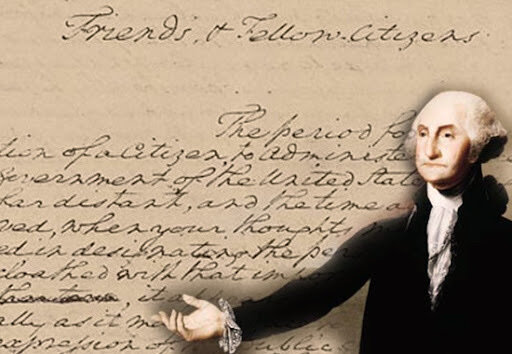 Friends, & Fellow-Citizens
The period fo
tion of a Citizen, to administe
vernment of the United State
far distant, and the time a
ved, when your thoughts m
ed in designating the per
cloathed with that impo
it app
ally as it may
expression of public